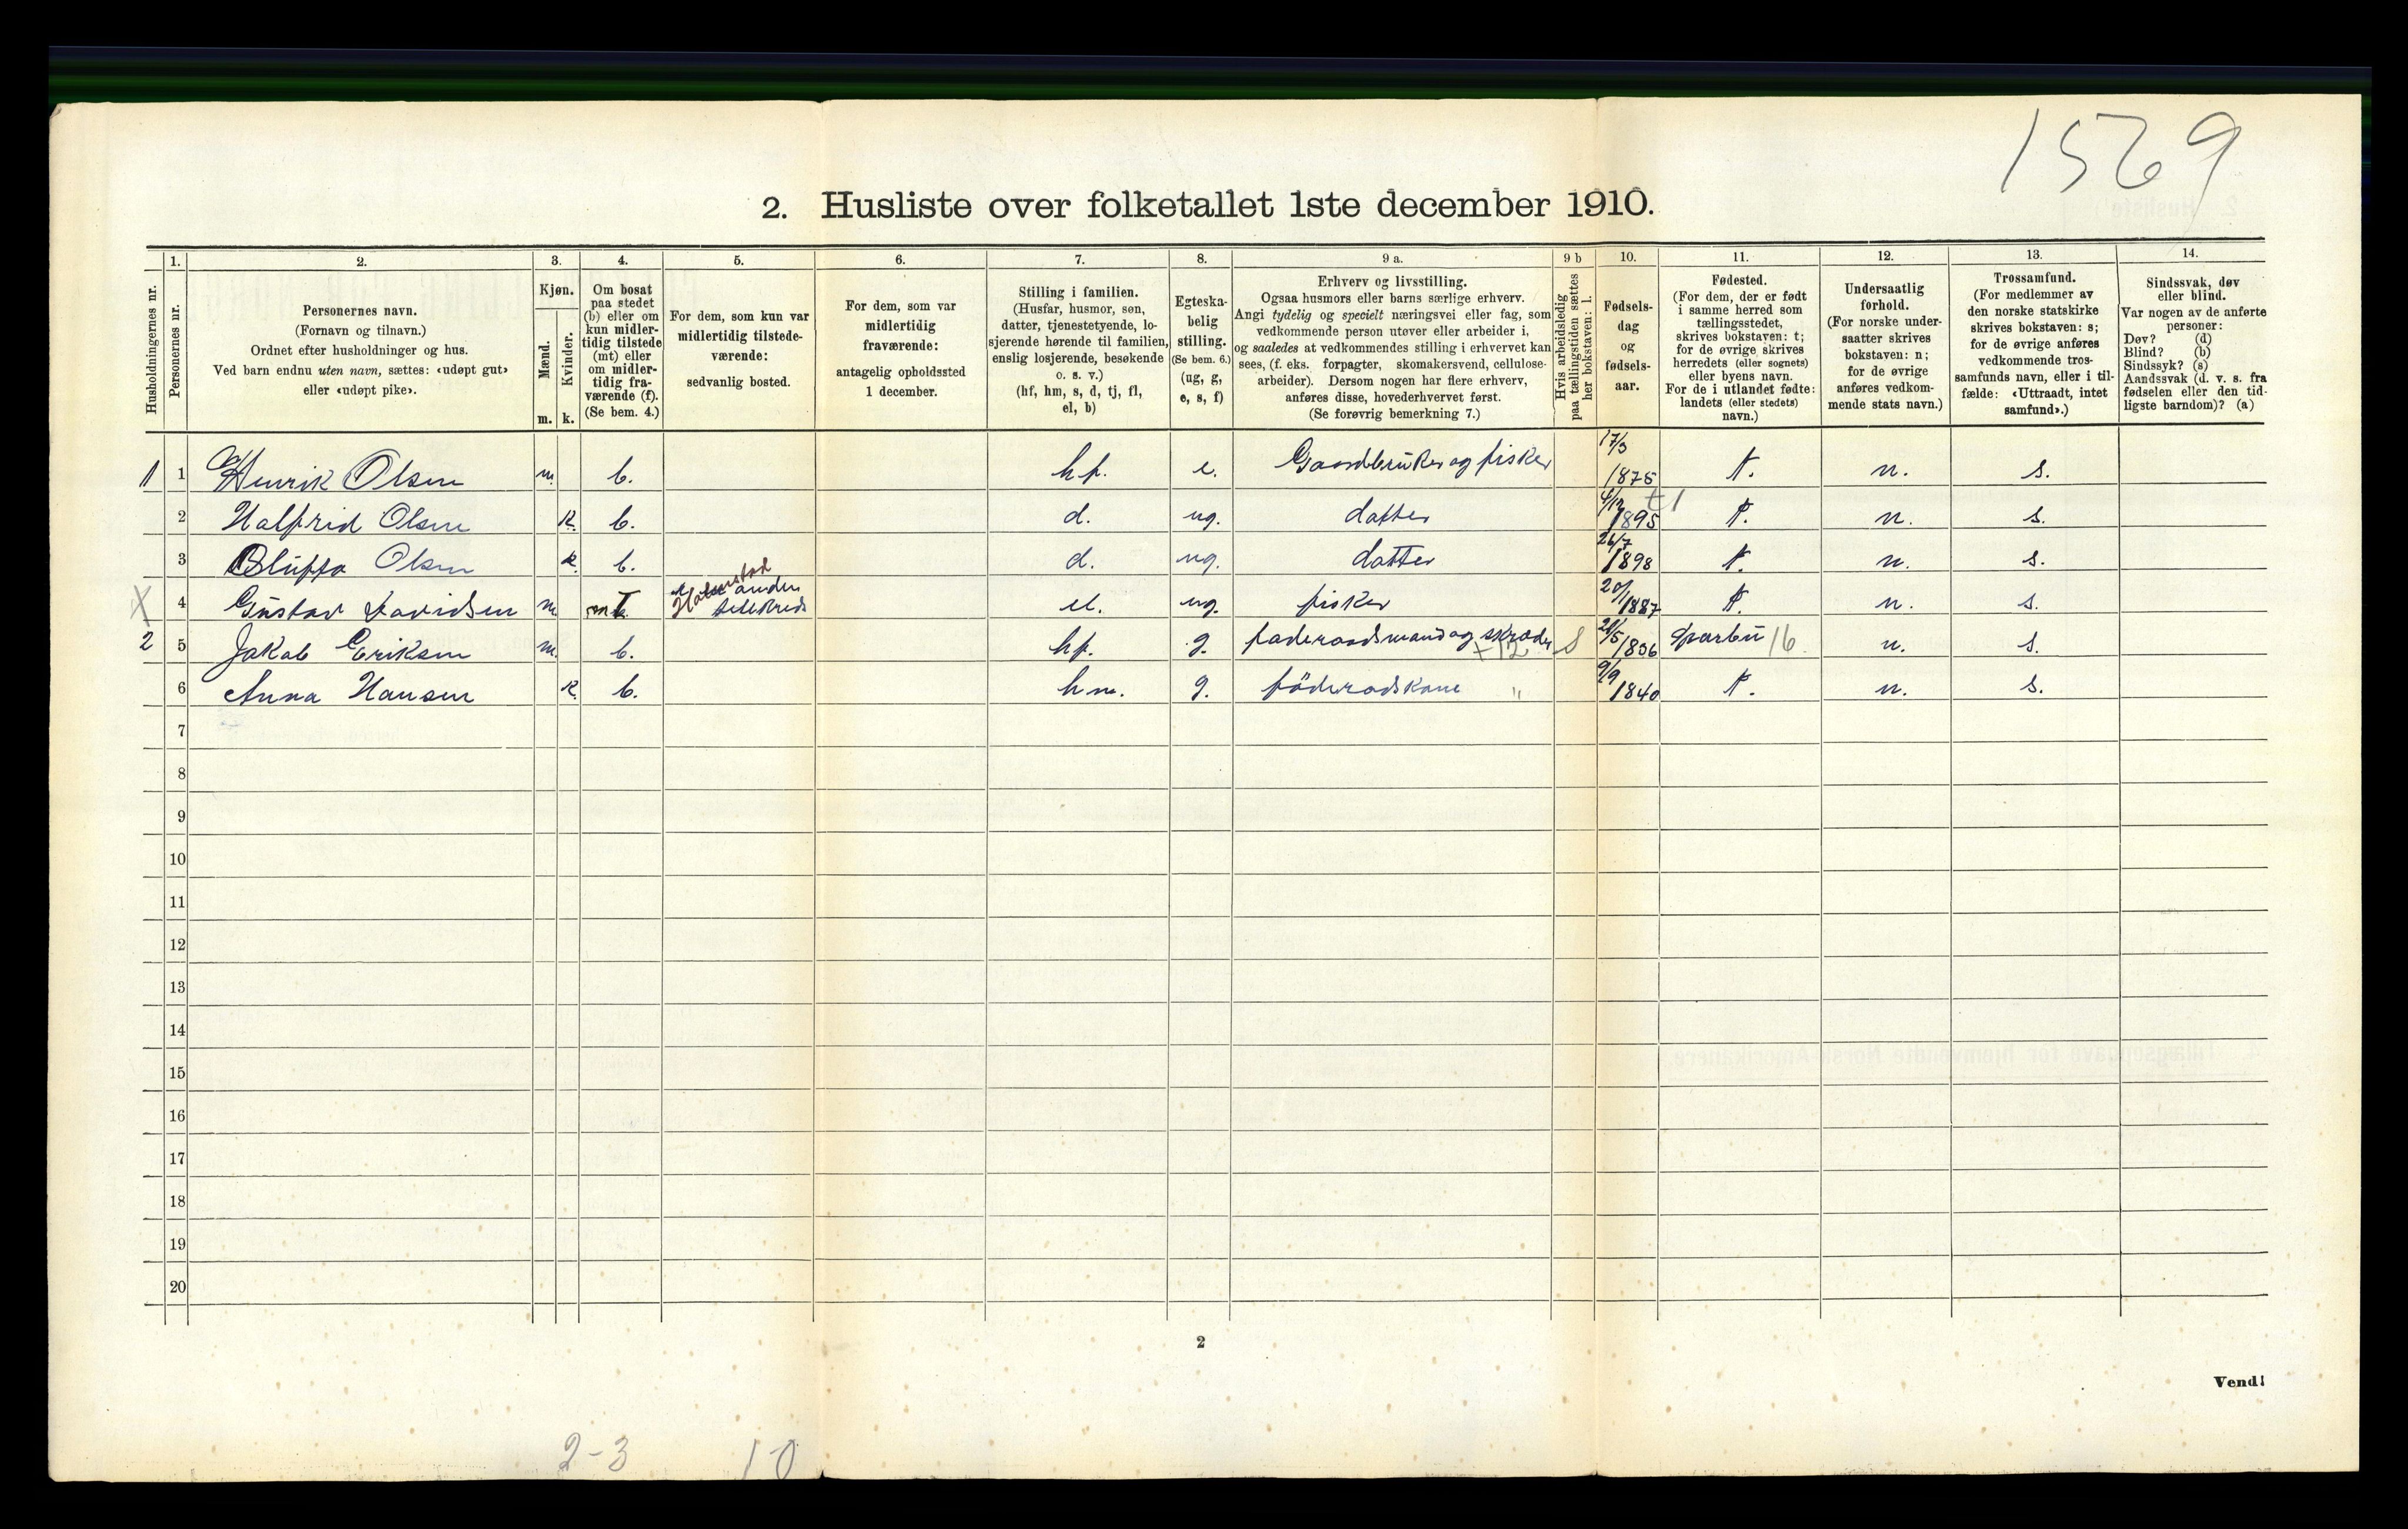 1569
2. Husliste over folketallet 1ste december 1910.
Husholdningernes nr.
1.
Personernes nr.
2.
Personernes navn.
(Fornavn og tilnavn.)
Ordnet efter husholdninger og hus.
Ved barn endnu uten navn, sættes: «udøpt gut»
eller «udøpt pike».
3.
Kjøn.
Mænd.
Kvinder.
m. k.
4.
Om bosat
paa stedet
(b) eller om
kun midler-
tidig tilstede
(mt) eller
om midler-
tidig fra-
værende (f).
(Se bem. 4.)
5.
For dem, som kun var
midlertidig tilstede-
værende:
sedvanlig bosted.
6.
For dem, som var
midlertidig
fraværende:
antagelig opholdssted
1 december.
7.
Stilling i familien.
(Husfar, husmor, søn,
datter, tjenestetyende, lo-
sjerende hørende til familien,
enslig losjerende, besøkende
o. s. v.)
(hf, hm, s, d, tj, fl,
el, b)
8.
Egteska-
belig
stilling.
(Se bem. 6.)
(ug, g,
e, s, f)
9 a.
Erhverv og livsstilling.
Ogsaa husmors eller barns særlige erhverv.
Angi tydelig og specielt næringsvei eller fag, som
vedkommende person utøver eller arbeider i,
og saaledes at vedkommendes stilling i erhvervet kan
sees, (f. eks. forpagter, skomakersvend, cellulose-
arbeider). Dersom nogen har flere erhverv,
anføres disse, hovederhvervet først.
(Se forøvrig bemerkning 7.)
9 b
Hvis arbeidsledig
paa tællingstiden sættes
her bokstaven: l.
10.
Fødsels-
dag
og
fødsels-
aar.
11.
Fødested.
(For dem, der er født
i samme herred som
tællingsstedet,
skrives bokstaven: t;
for de øvrige skrives
herredets (eller sognets)
eller byens navn.
For de i utlandet fødte:
landets (eller stedets)
navn.)
12.
Undersaatlig
forhold.
(For norske under-
saatter skrives
bokstaven: n;
for de øvrige
anføres vedkom-
mende stats navn.)
13.
Trossamfund.
(For medlemmer av
den norske statskirke
skrives bokstaven: s;
for de øvrige anføres
vedkommende tros-
samfunds navn, eller i til-
fælde: «Uttraadt, intet
samfund».)
14.
Sindssvak, døv
eller blind.
Var nogen av de anførte
personer:
Døv? (d)
Blind? (b)
Sindssyk? (s)
Aandssvak (d. v. s. fra
fødselen eller den tid-
ligste barndom)? (a)
1 1 Henrik Olsen m. b. hf. e. Gaardbruker og fisker 17/3 1875 t. n. s.
2 Halfrid Olsen k. b. d. ug. datter 4/12 1895 t. n. s.
3 Olsen k. b. d. ug. datter 26/7 1898 t. n. s.
X 4 Gustav Davidsen m. mt el. ug. fisker 20/1 1887 t. n. s.
2 5 Jakob Eriksen m. b. hf. g. faderaadsmand og skræder 1836 Sparbu 16 n. s.
6 Anna Hansen k. b. hm. g. föderadskone " 9/9 1840 t. n. s.
7
8
9
10
11
12
13
14
15
16
17
18
19
20
2
Vend!
2-3 1-0